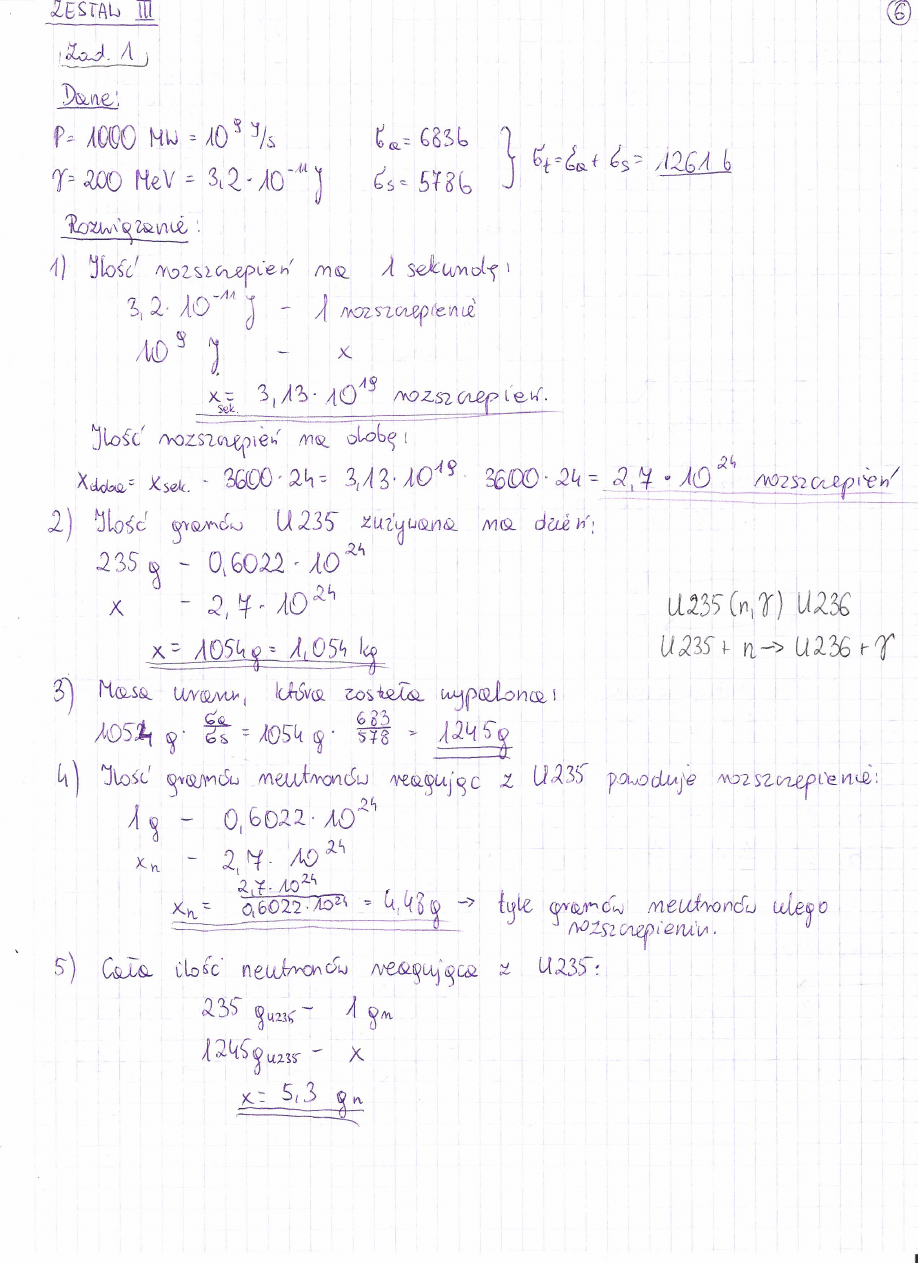 ZESTAW III
6
Zad. 1
Dane:
P= 1000 MW = 10⁹ J/s
γ= 200 MeV = 3,2·10⁻¹¹ J
σa = 683b
σs = 578b
} σt = σa + σs = 1261 b
Rozwiązanie:
1) Ilość rozszczepień na 1 sekundę:
3,2·10⁻¹¹ J - 1 rozszczepienie
10⁹ J - x
x sek. = 3,13·10¹⁹ rozszczepień.
Ilość rozszczepień na dobę:
x doba = x sek. · 3600·24 = 3,13·10¹⁹ · 3600·24 = 2,7·10²⁴ rozszczepień
2) Ilość gramów U235 zużywana na dzień:
235 g - 0,6022·10²⁴
x - 2,7·10²⁴
x = 1054g = 1,054 kg
U235 (n,γ) U236
U235 + n → U236 + γ
3) Masa uranu, która została wypalona:
1054 g · σa/σs = 1054 g · 683/578 = 1245g
4) Ilość gramów neutronów reagując z U235 powoduje rozszczepienie:
1g - 0,6022·10²⁴
xn - 2,7·10²⁴
xn = 2,7·10²⁴/0,6022·10²⁴ = 4,48g → tyle gramów neutronów ulega
rozszczepieniu.
5) Cała ilość neutronów reagująca z U235:
235 g U235 - 1 gn
1245g U235 - x
x = 5,3 gn